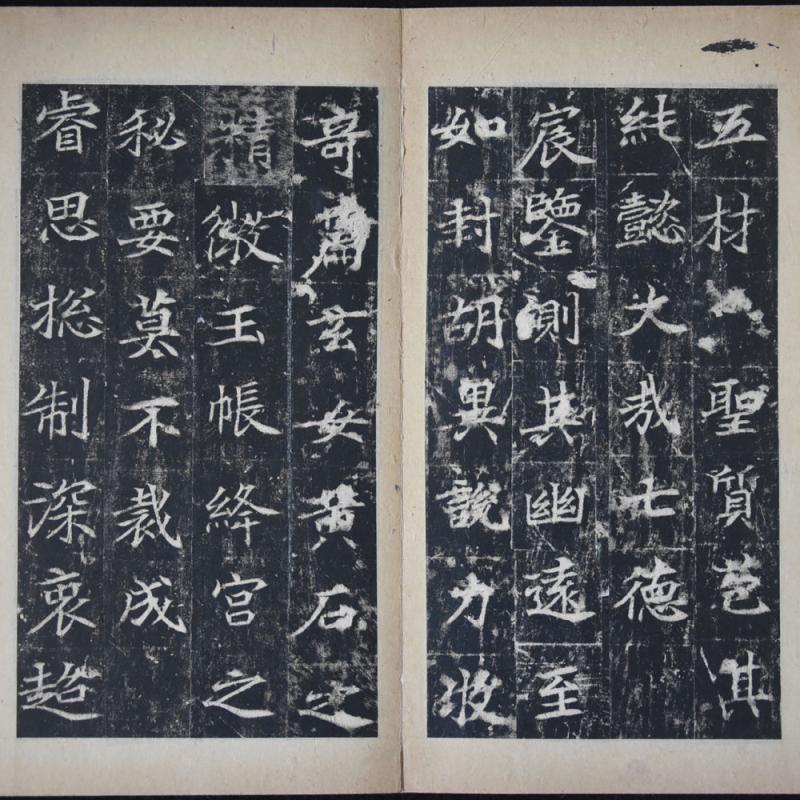 五材聖質苞其
純懿大哉七德
宸鑒測其幽遠至
如封胡異說力牧
奇篇玄女黃石之
精微玉帳絳宮之
秘要莫不裁成
睿思摠制深衷超